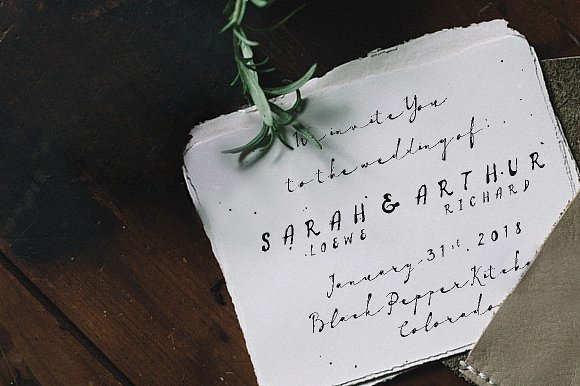 We invite You
to the wedding of:
SARAH & ARTHUR
LOEWE RICHARD
January 31st, 2018
Black Pepper Kitchen
Colorado